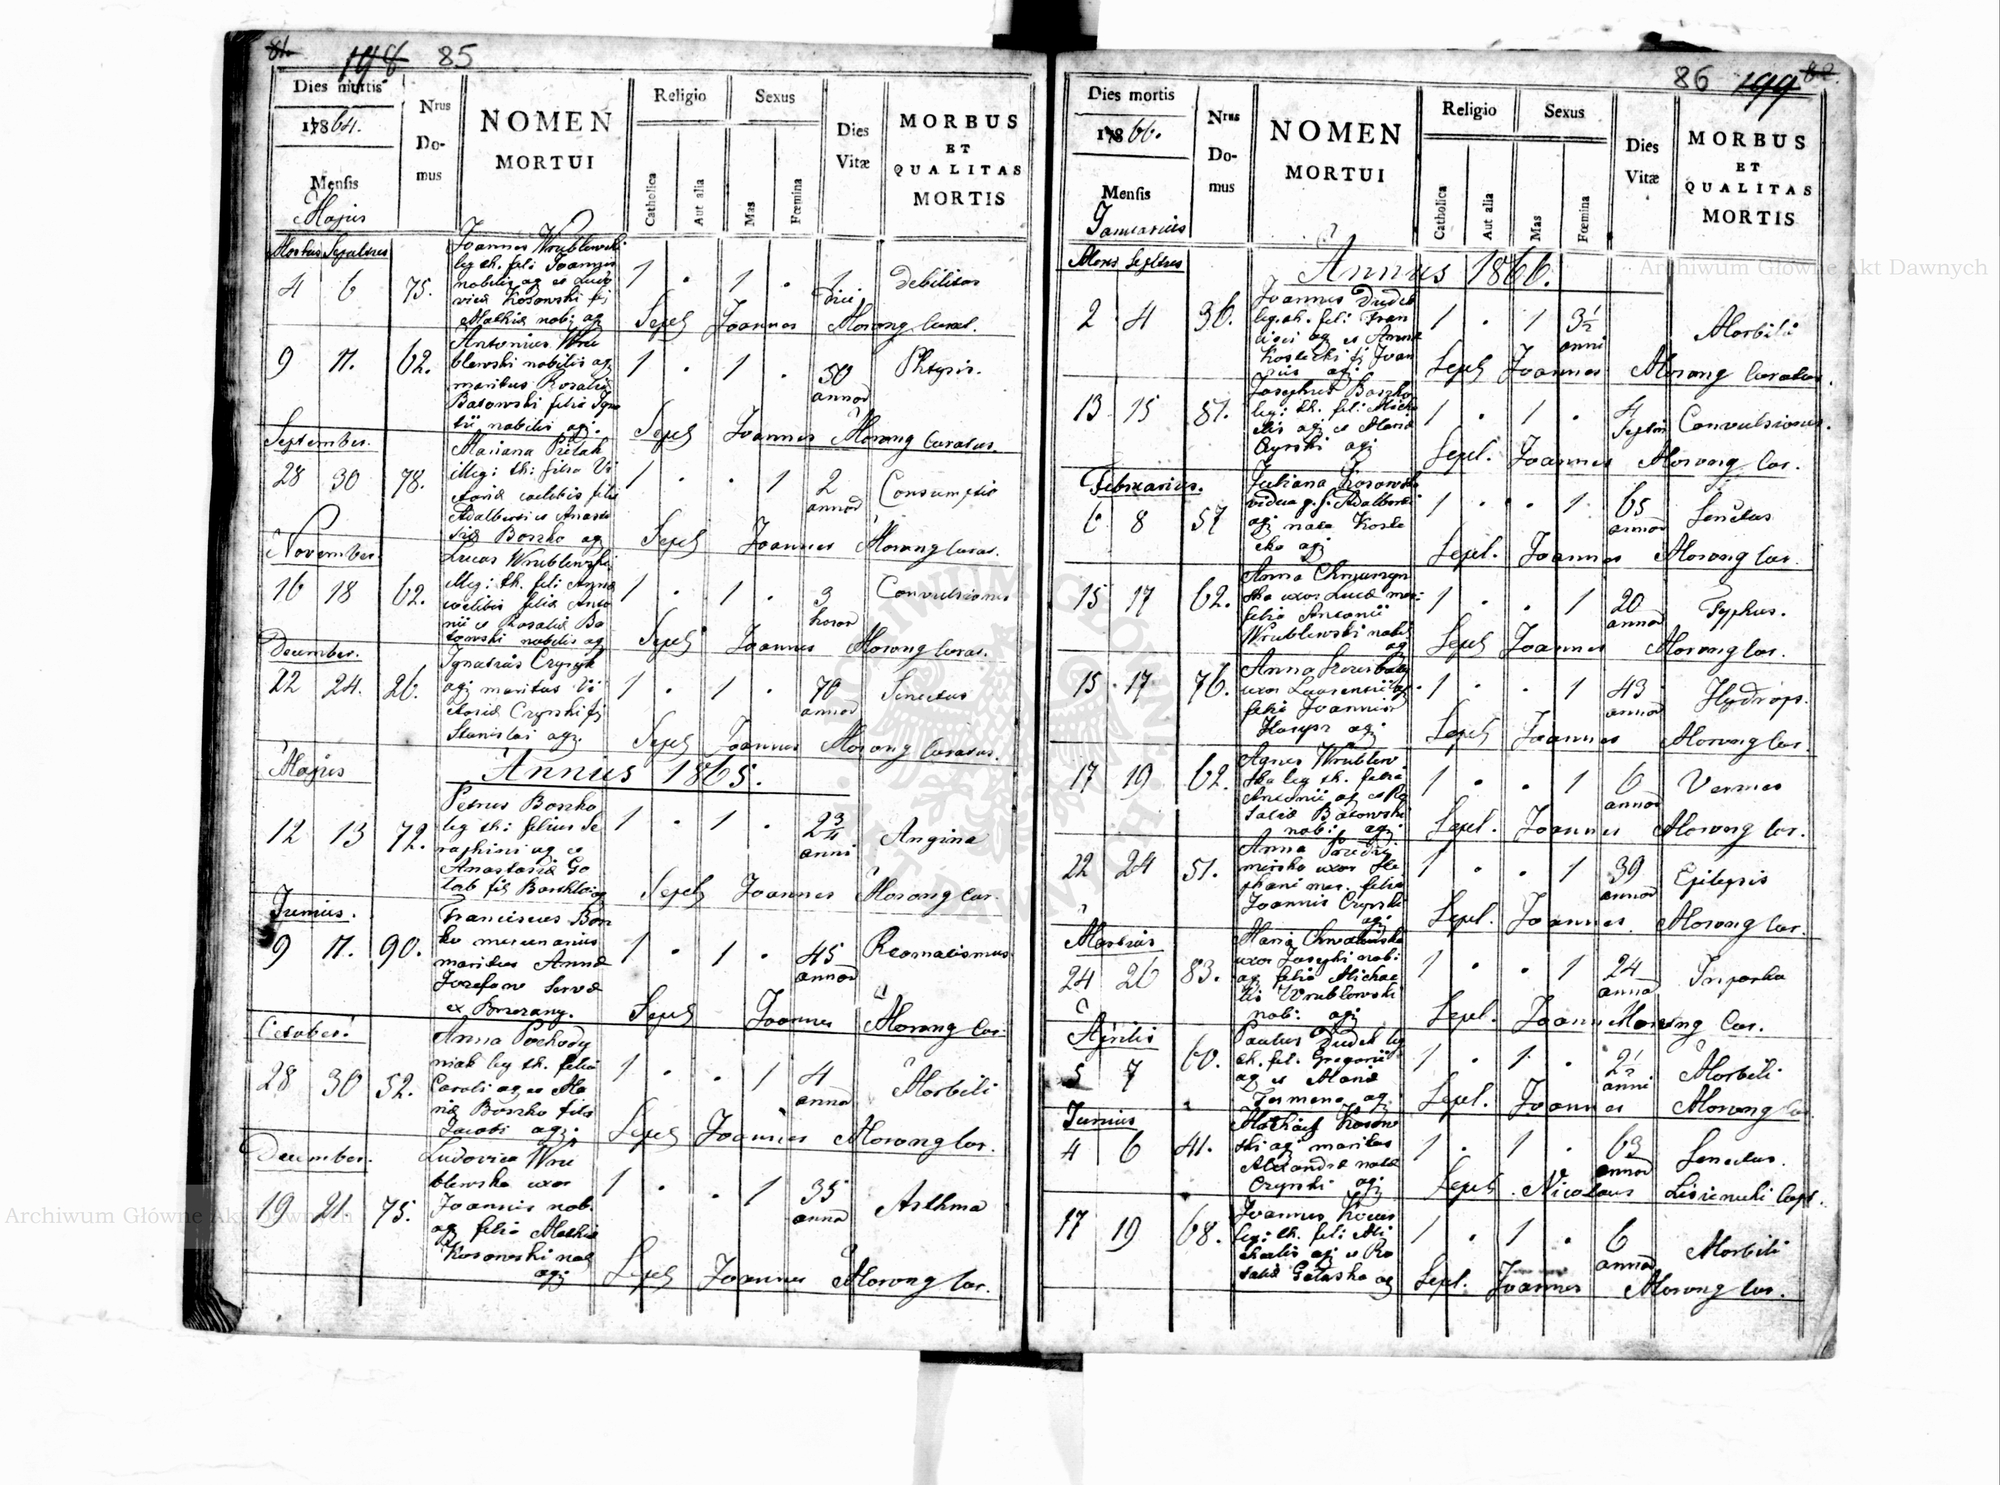 198 85
Dies mortis
1864.
Mensis
Majus
Nrus Domus
NOMEN
MORTUI
Religio
Catholica
Aut alia
Sexus
Mas
Fœmina
Dies Vitæ
MORBUS
ET
QUALITAS
MORTIS
Mortuus Sepultus
4 6 75. Joannes Wrublewski 1 . 1 . 1 Debilitas
leg th. fili Joannis
nobilis ag et Ludo
vica Kosowski fi
Mathiæ nob: ag
Sepel Joannes Morong Curat.
9 11. 62. Antonius Wru 1 . 1 . 50 annor Phtysis.
blewski nobilis ag
maritus Rosaliæ
Batowski filia Igna
tii nobilis ag:
Sepel Joannes Morong Curatus.
September.
28 30 78. Mariana 1 . . 1 2 annor Consumptio
illeg: th: filia Vi
ctoriæ cælibis filia
Adalberti et Anasta
siæ Boszko ag
Sepel Joannes Morong Curat.
November.
16 18 62. Lucas Wrublewski 1 . 1 . 3 horar Convulsiones
illeg: th. fili Annæ
cælibis filiæ Anto
nii et Rosaliæ Ba
towski nobilis ag
Sepel Joannes Morong Curat.
December.
22 24. 26. Ignatius Czyryk 1 . 1 . 70 annor Senectus
ag: maritus Vi
ctoriæ Czyrski fi
Stanislai ag:
Sepel Joannes Morong Curatus.
Majus
Annus 1865.
12 13 72. Petrus Boszko 1 . 1 . 2 3/4 anni Angina
leg th: filius Se
raphini ag et
Anastasiæ Go
lab
Sepel Joannes Morong Cur.
Junius.
9 11. 90. Franciscus Bor 1 . 1 . 45 annor Reomatismus
ko mercenarius
maritus Annæ
Jozefow Servæ
ex
Sepel Joannes Morong Cur.
October.
28 30 52. Anna Pochody 1 . . 1 4 annor Morbili
niak leg th. filia
Caroli ag et Ma
riæ Boszko filia
Jacobi ag:
Sepel Joannes Morong Cur.
December.
19 21. 75. Ludovica Wru 1 . . 1 35 annor Asthma
blewska uxor
Joannis nob.
ag filia Mathiæ
Kosowski nob
ag:
Sepel Joannes Morong Cur.
86 199
Dies mortis
1866.
Mensis
Januarius
Nrus Domus
NOMEN
MORTUI
Religio
Catholica
Aut alia
Sexus
Mas
Fœmina
Dies Vitæ
MORBUS
ET
QUALITAS
MORTIS
Annus 1866.
2 4 36. Joannes Dudek 1 . 1 3 1/2 anni Morbili
leg. th. fili Fran
cisci ag et Annæ
Kostecki fi Joan
nis ag:
Sepel Joannes Morong Curatus.
13 15 81. Josephus Boszko 1 . 1 . Convulsiones.
leg: th. fili Micha
elis ag et Mariæ
Czyrski ag:
Sepel. Joannes Morong Cur.
Februarius.
6 8 57 Juliana Kosowska 1 . . 1 65 annor Senectus
vidua
ag: nata Koste
cka ag:
Sepel. Joannes Morong Cur.
15 17 62. Anna 1 . . 1 20 annor Typhus.
ska uxor Lucæ mer:
filia Antonii
Wrublewski nobi
ag
Sepel Joannes Morong Cur.
15 17 76. Anna 1 . . 1 43 annor Hydrops.
uxor Laurentii ag
filia Joannis
ag:
Sepel Joannes Morong Cur.
17 19 62. Agnes Wrublew 1 . . 1 6 annor Vermes
ska leg th. filia
Antonii ag et Ro
saliæ Batowski
nob: ag:
Sepel. Joannes Morong Cur.
22 24 51. Anna 1 . . 1 39 annor Epilepsis
mirska uxor Ste
phani mer. filia
Joannis Czyrski
ag:
Sepel. Joannes Morong Cur.
Martius
24 26 83. Maria 1 . . 1 24 annor
uxor Josephi nob:
ag filia Michae
lis Wrublewski
nob: ag:
Sepel. Joannes Morong Cur.
Aprilis
5 7 60. Paulus Dudek leg 1 . 1 . 2 1/2 anni Morbili
th. fil. Gregorii
ag et Mariæ
ag:
Sepel Joannes Morong Cur.
Junius
4 6 41. Mathias Kosow 1 . 1 . 63 annor Senectus.
ski ag: maritus
Alexandræ natæ
Czyrski ag:
Sepel. Nicolaus Lisieniecki Cap.
17 19 68. Joannes 1 . 1 . 6 annor Morbili
leg: th. fili Mi
chaelis ag: et Ro
saliæ ag
Sepel. Joannes Morong Cur.
Archiwum Główne Akt Dawnych
Archiwum Główne Akt Dawnych